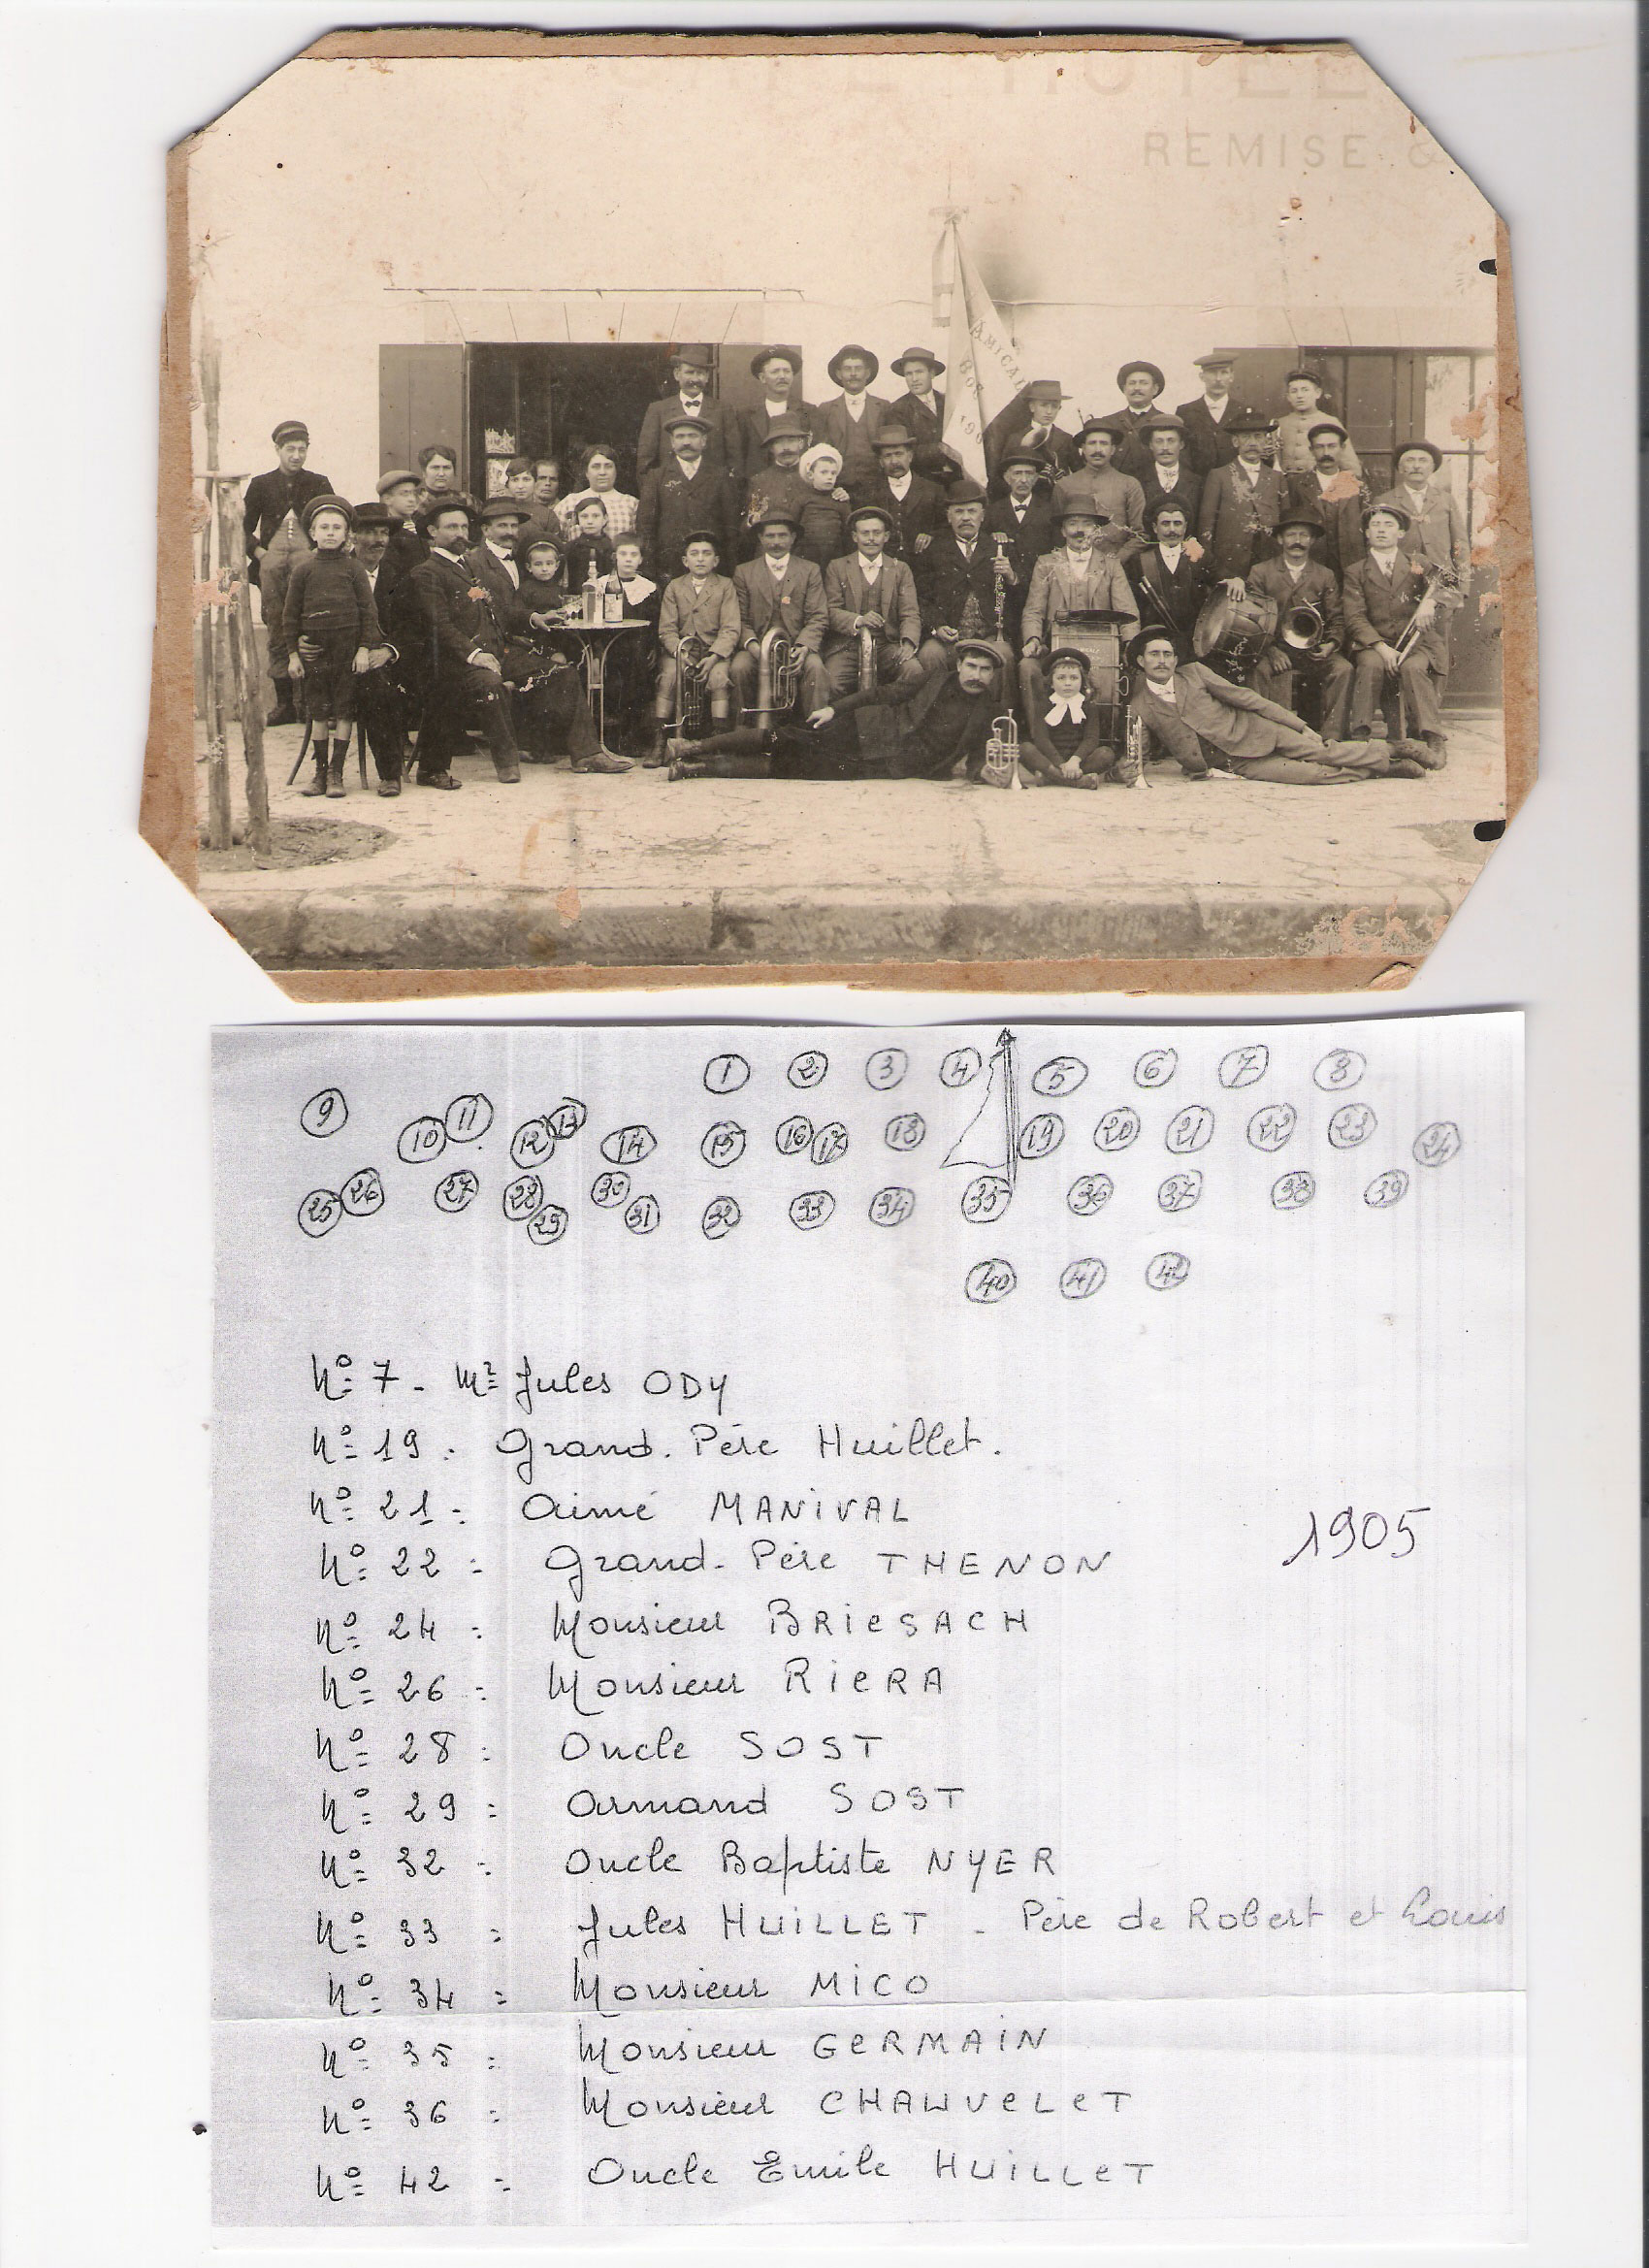 CAFE HOTEL
REMISE &
AMICAL
BOF
190
1 2 3 4 5 6 7 8
9 10 11 12 13 14 15 16 17 18 19 20 21 22 23 24
25 26 27 28 29 30 31 32 33 34 35 36 37 38 39
40 41 42
Nº 7 - Mr Jules ODY
Nº 19 : Grand-Père Huillet.
Nº 21 : Aimé MANIVAL
1905
Nº 22 : Grand-Père THENON
Nº 24 : Monsieur BRIESACH
Nº 26 : Monsieur RIERA
Nº 28 : Oncle SOST
Nº 29 : Armand SOST
Nº 32 : Oncle Baptiste NYER
Nº 33 : Jules HUILLET - Père de Robert et Louis
Nº 34 : Monsieur MICO
Nº 35 : Monsieur GERMAIN
Nº 36 : Monsieur CHAUVELET
Nº 42 : Oncle Emile HUILLET